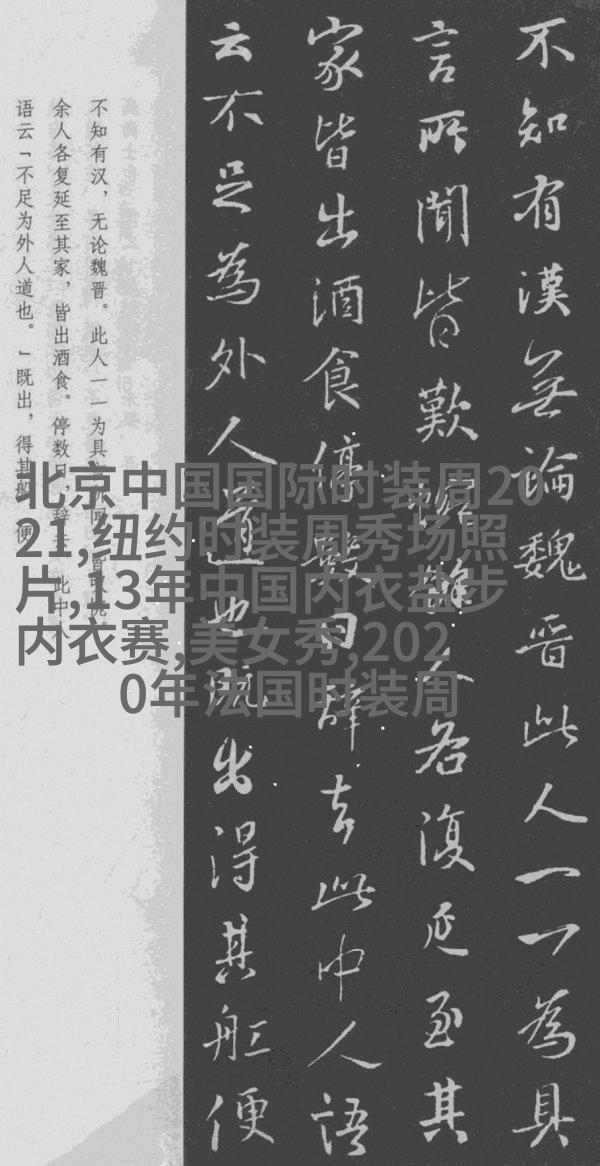 不知有漢無論魏晋此人一一為具
言所聞皆歎惋餘人各復延至其
家皆出酒食停數日辭去此中人語
云不足為外人道也既出得其舡便
不知有汉，无论魏晋。此人一一为具
余人各复延至其家，皆出酒食。停数日，辞去。此中人
语云「不足为外人道也。」既出，得其船，便
北京中国国际时装周20
21,纽约时装周秀场照
片,13年中国内衣盐步
内衣赛,美女秀,202
0年法国时装周